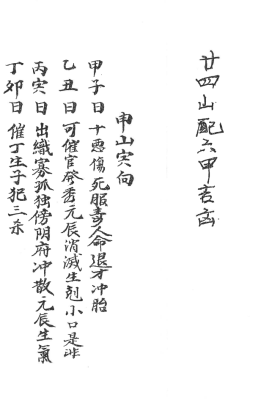 廿四山配六甲吉凶
申山寅向
甲子日十惡傷死服毒人命退才冲胎
乙丑日可催官發秀元辰消滅生剋小口是非
丙寅日出織寡孤独傍阴府冲散元辰生氣
丁卯日催丁生子犯三杀